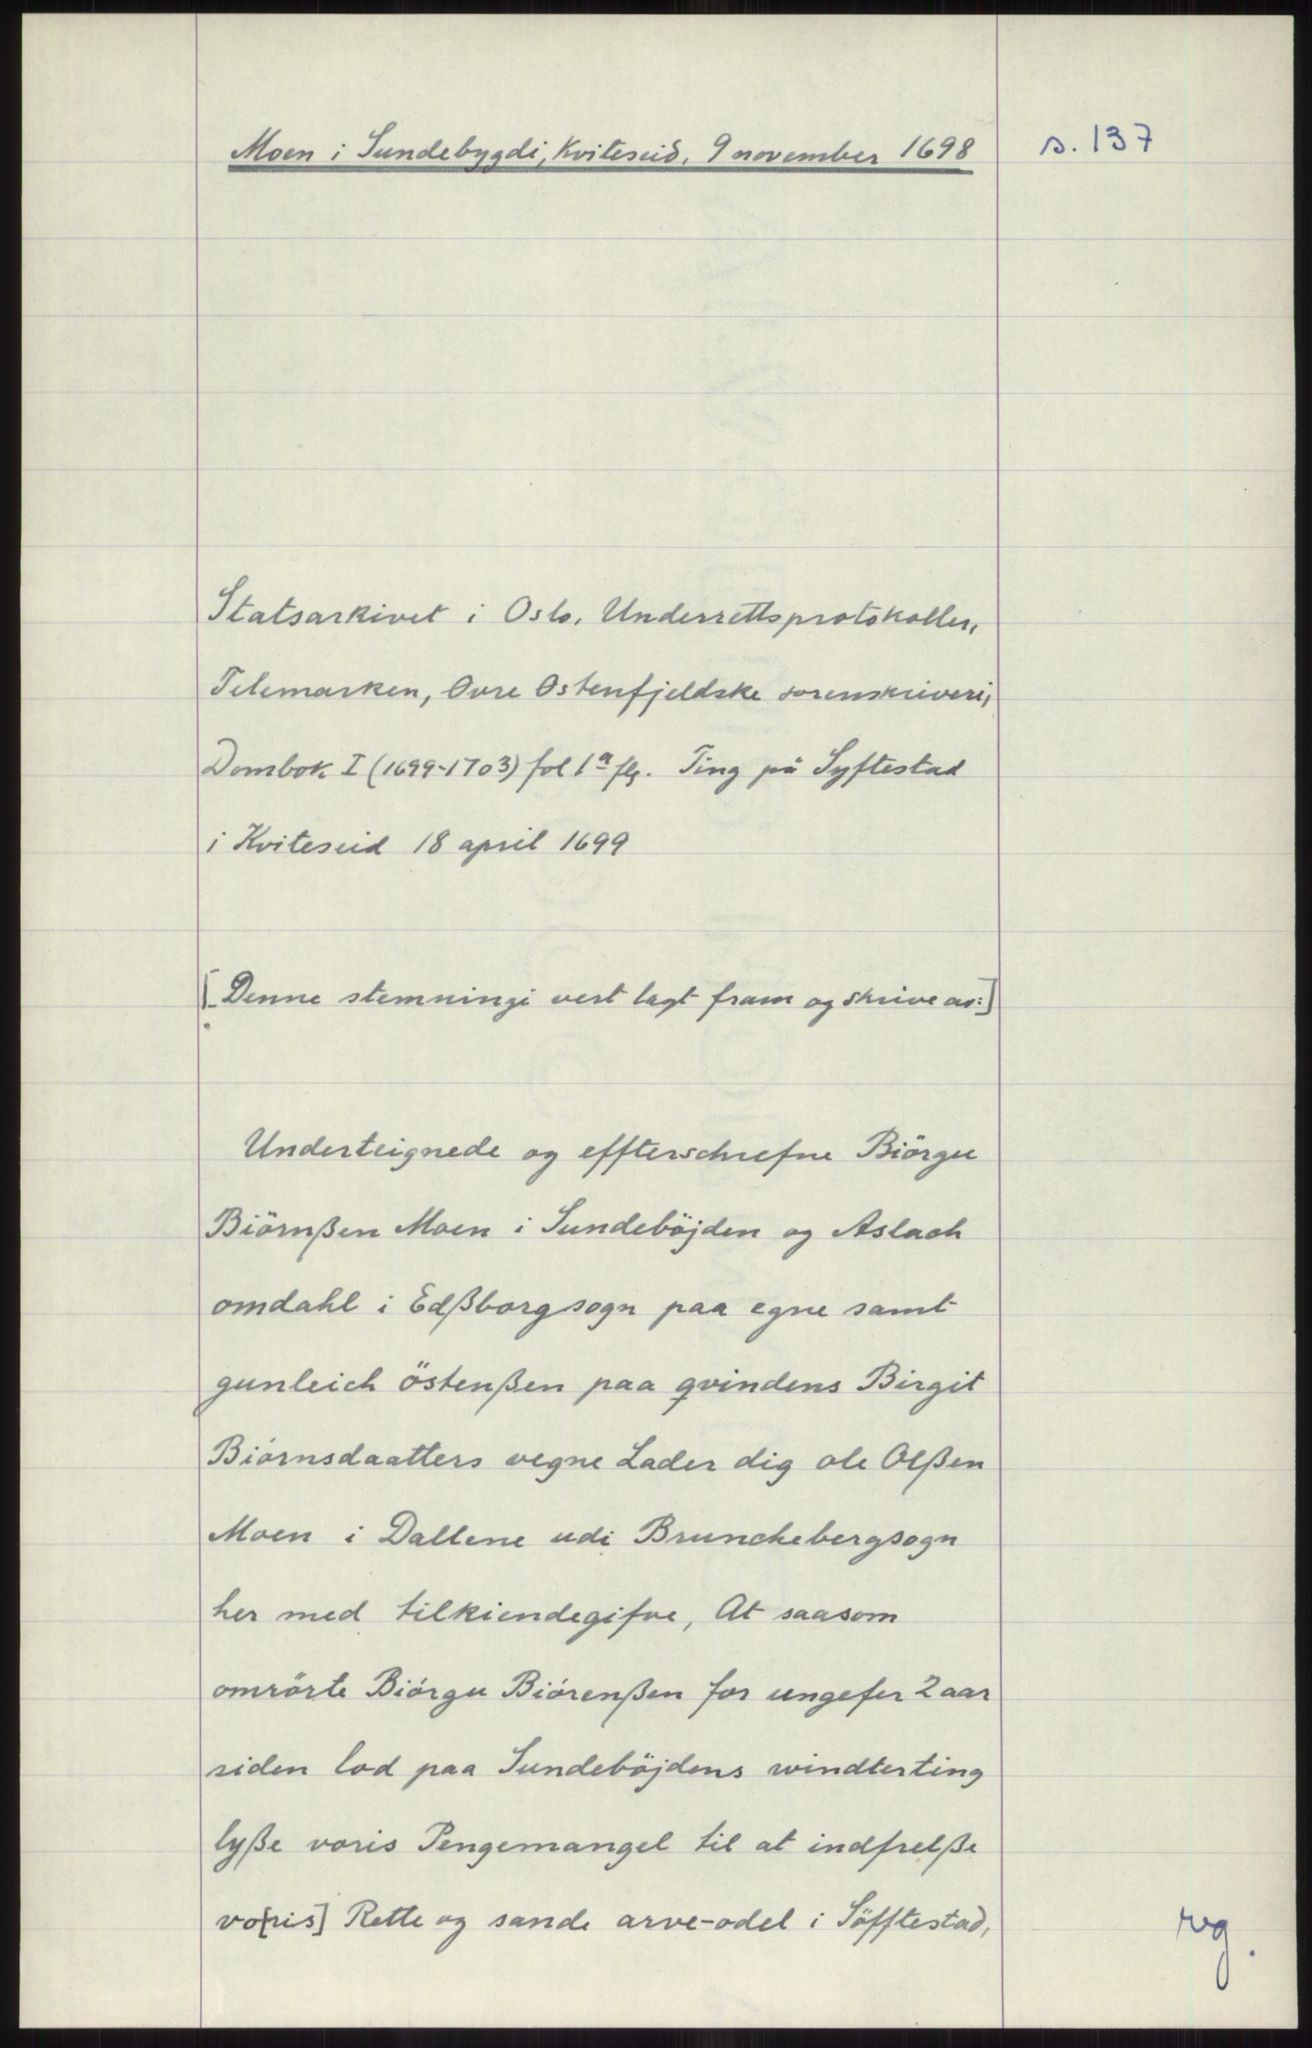 Moen i Sundebygdi, Kviteseid, 9 november 1698
s. 137
Statsarkivet i Oslo. Underrettsprotokoller,
Telemarken, Øvre Østenfjeldske sorenskriveri,
Dombok I (1699-1703) fol 1a flg. Ting på Syftestad
i Kviteseid 18 april 1699
[Denne stemningi vert lagt fram og skrive av:]
Underteignede og effterschrefne Biörgu
Biörnßen Moen i Sundeböjden og Aslach
omdahl i Edßborgsogn paa egne samt
gunleich östenßen paa qvindens Birgit
Biörnsdaatters vegne Lader dig ole Olßen
Moen i Dallene udi Brunchebergsogn
her med tilkiendegifve, At saasom
omrörte Biörgu Biörenßen for ungefer 2 aar
siden lod paa Sundeböjdens windterting
lyße voris Pengemangel til at indfrelße
vo[ris] Rette og sande arve-odel i Söfftestad,
rvg.